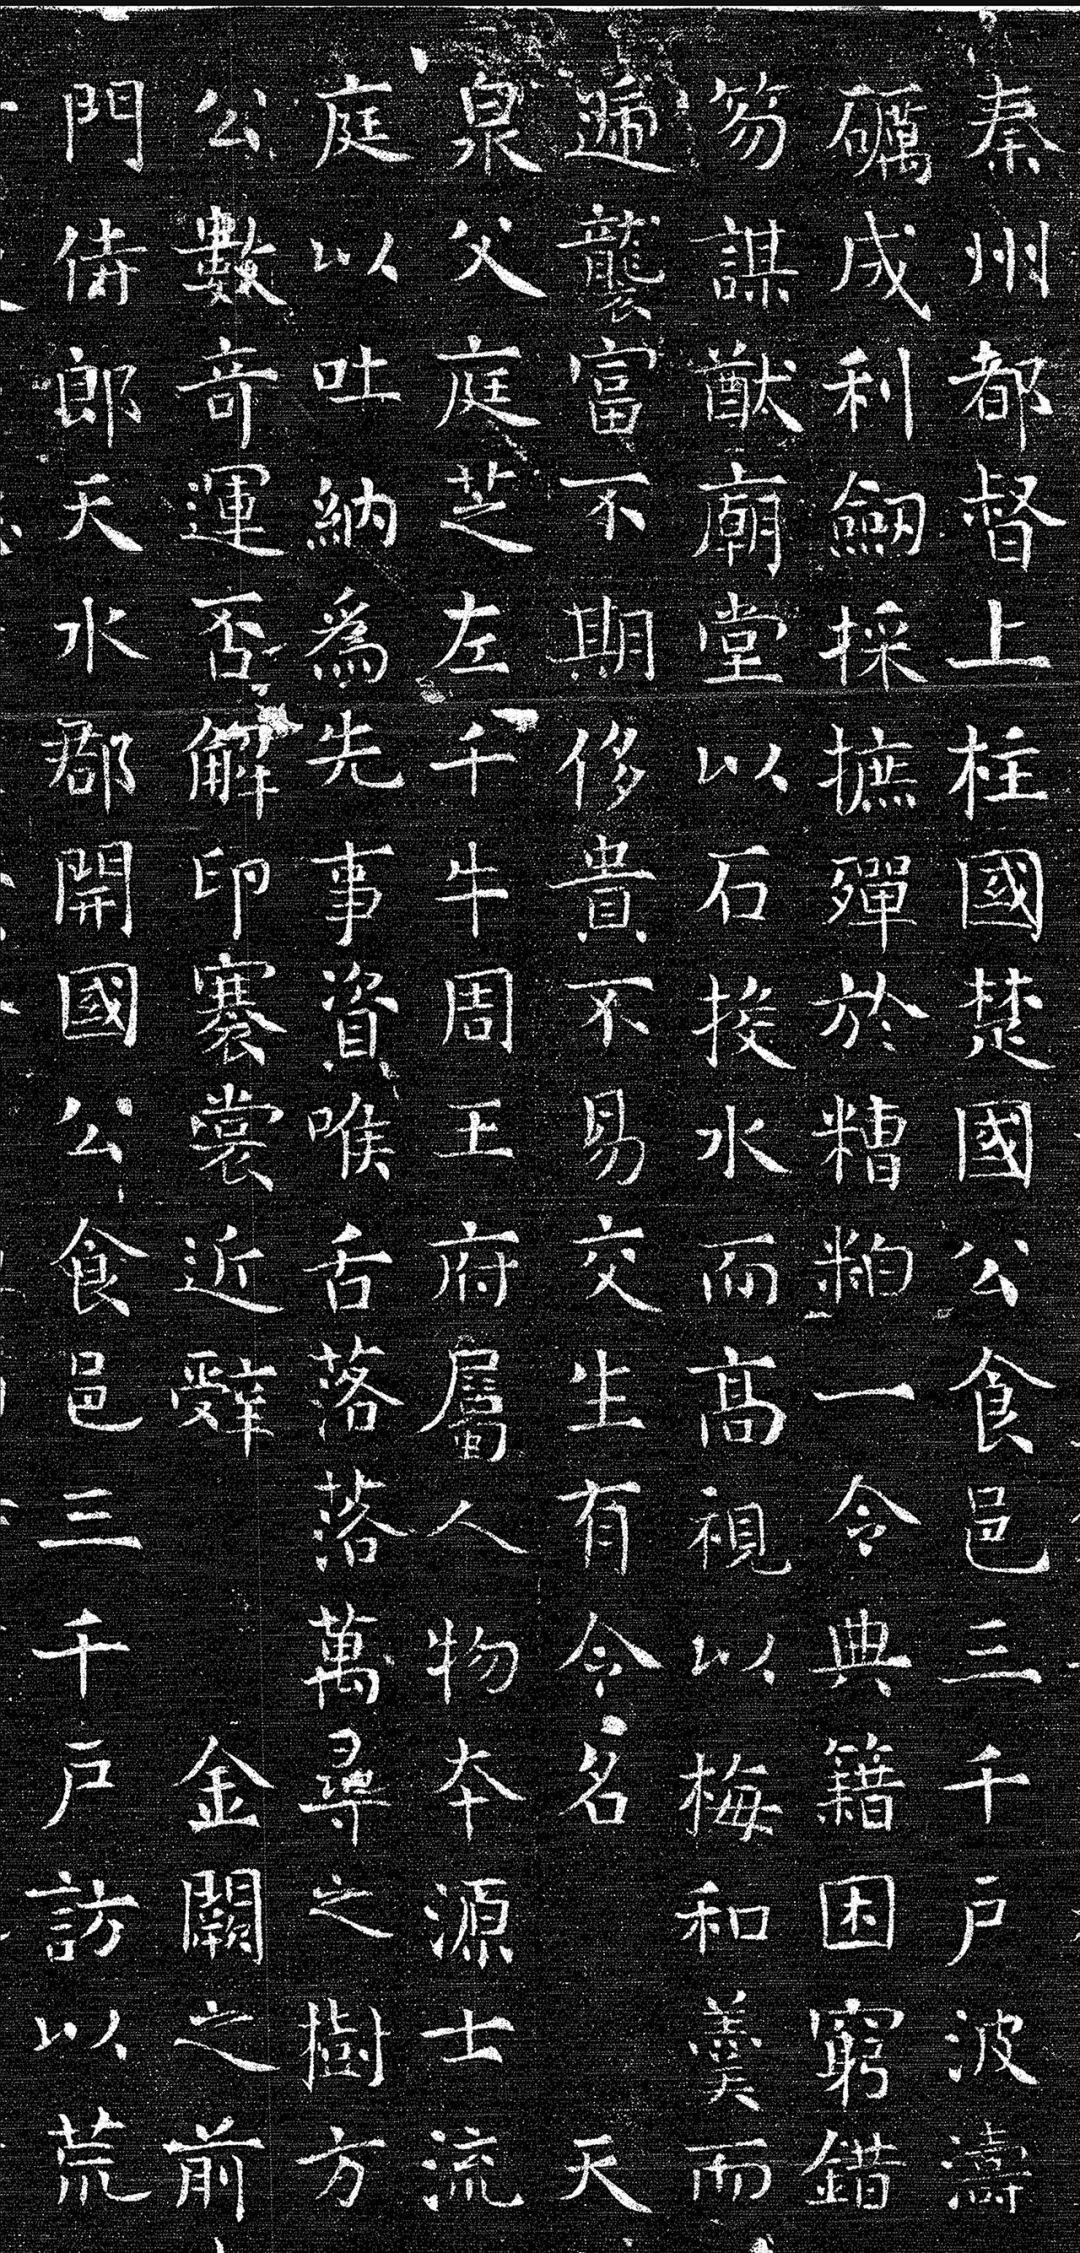 秦州都督上柱國楚國公食邑三千户波濤
礪成利劒採摭殫於糟粕一令典籍困窮錯
笏謀猷廟堂以石投水而高視以梅和羹而
遞襲富不期侈貴不易交生有令名天
泉父庭芝左千牛周王府屬人物本源士流
庭以吐納爲先事資喉舌落落萬尋之樹方
公數奇運否解印褰裳近辭金闕之前
門侍郎天水郡開國公食邑三千户訪以荒